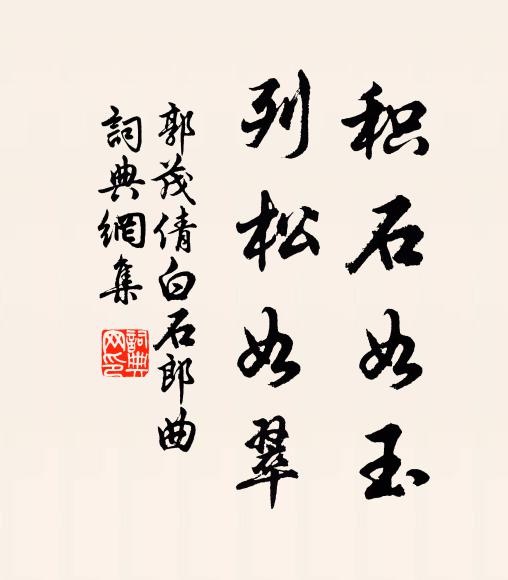 积石如玉
列松如翠
郭茂倩白石郎曲
詞典網集
詞典网印